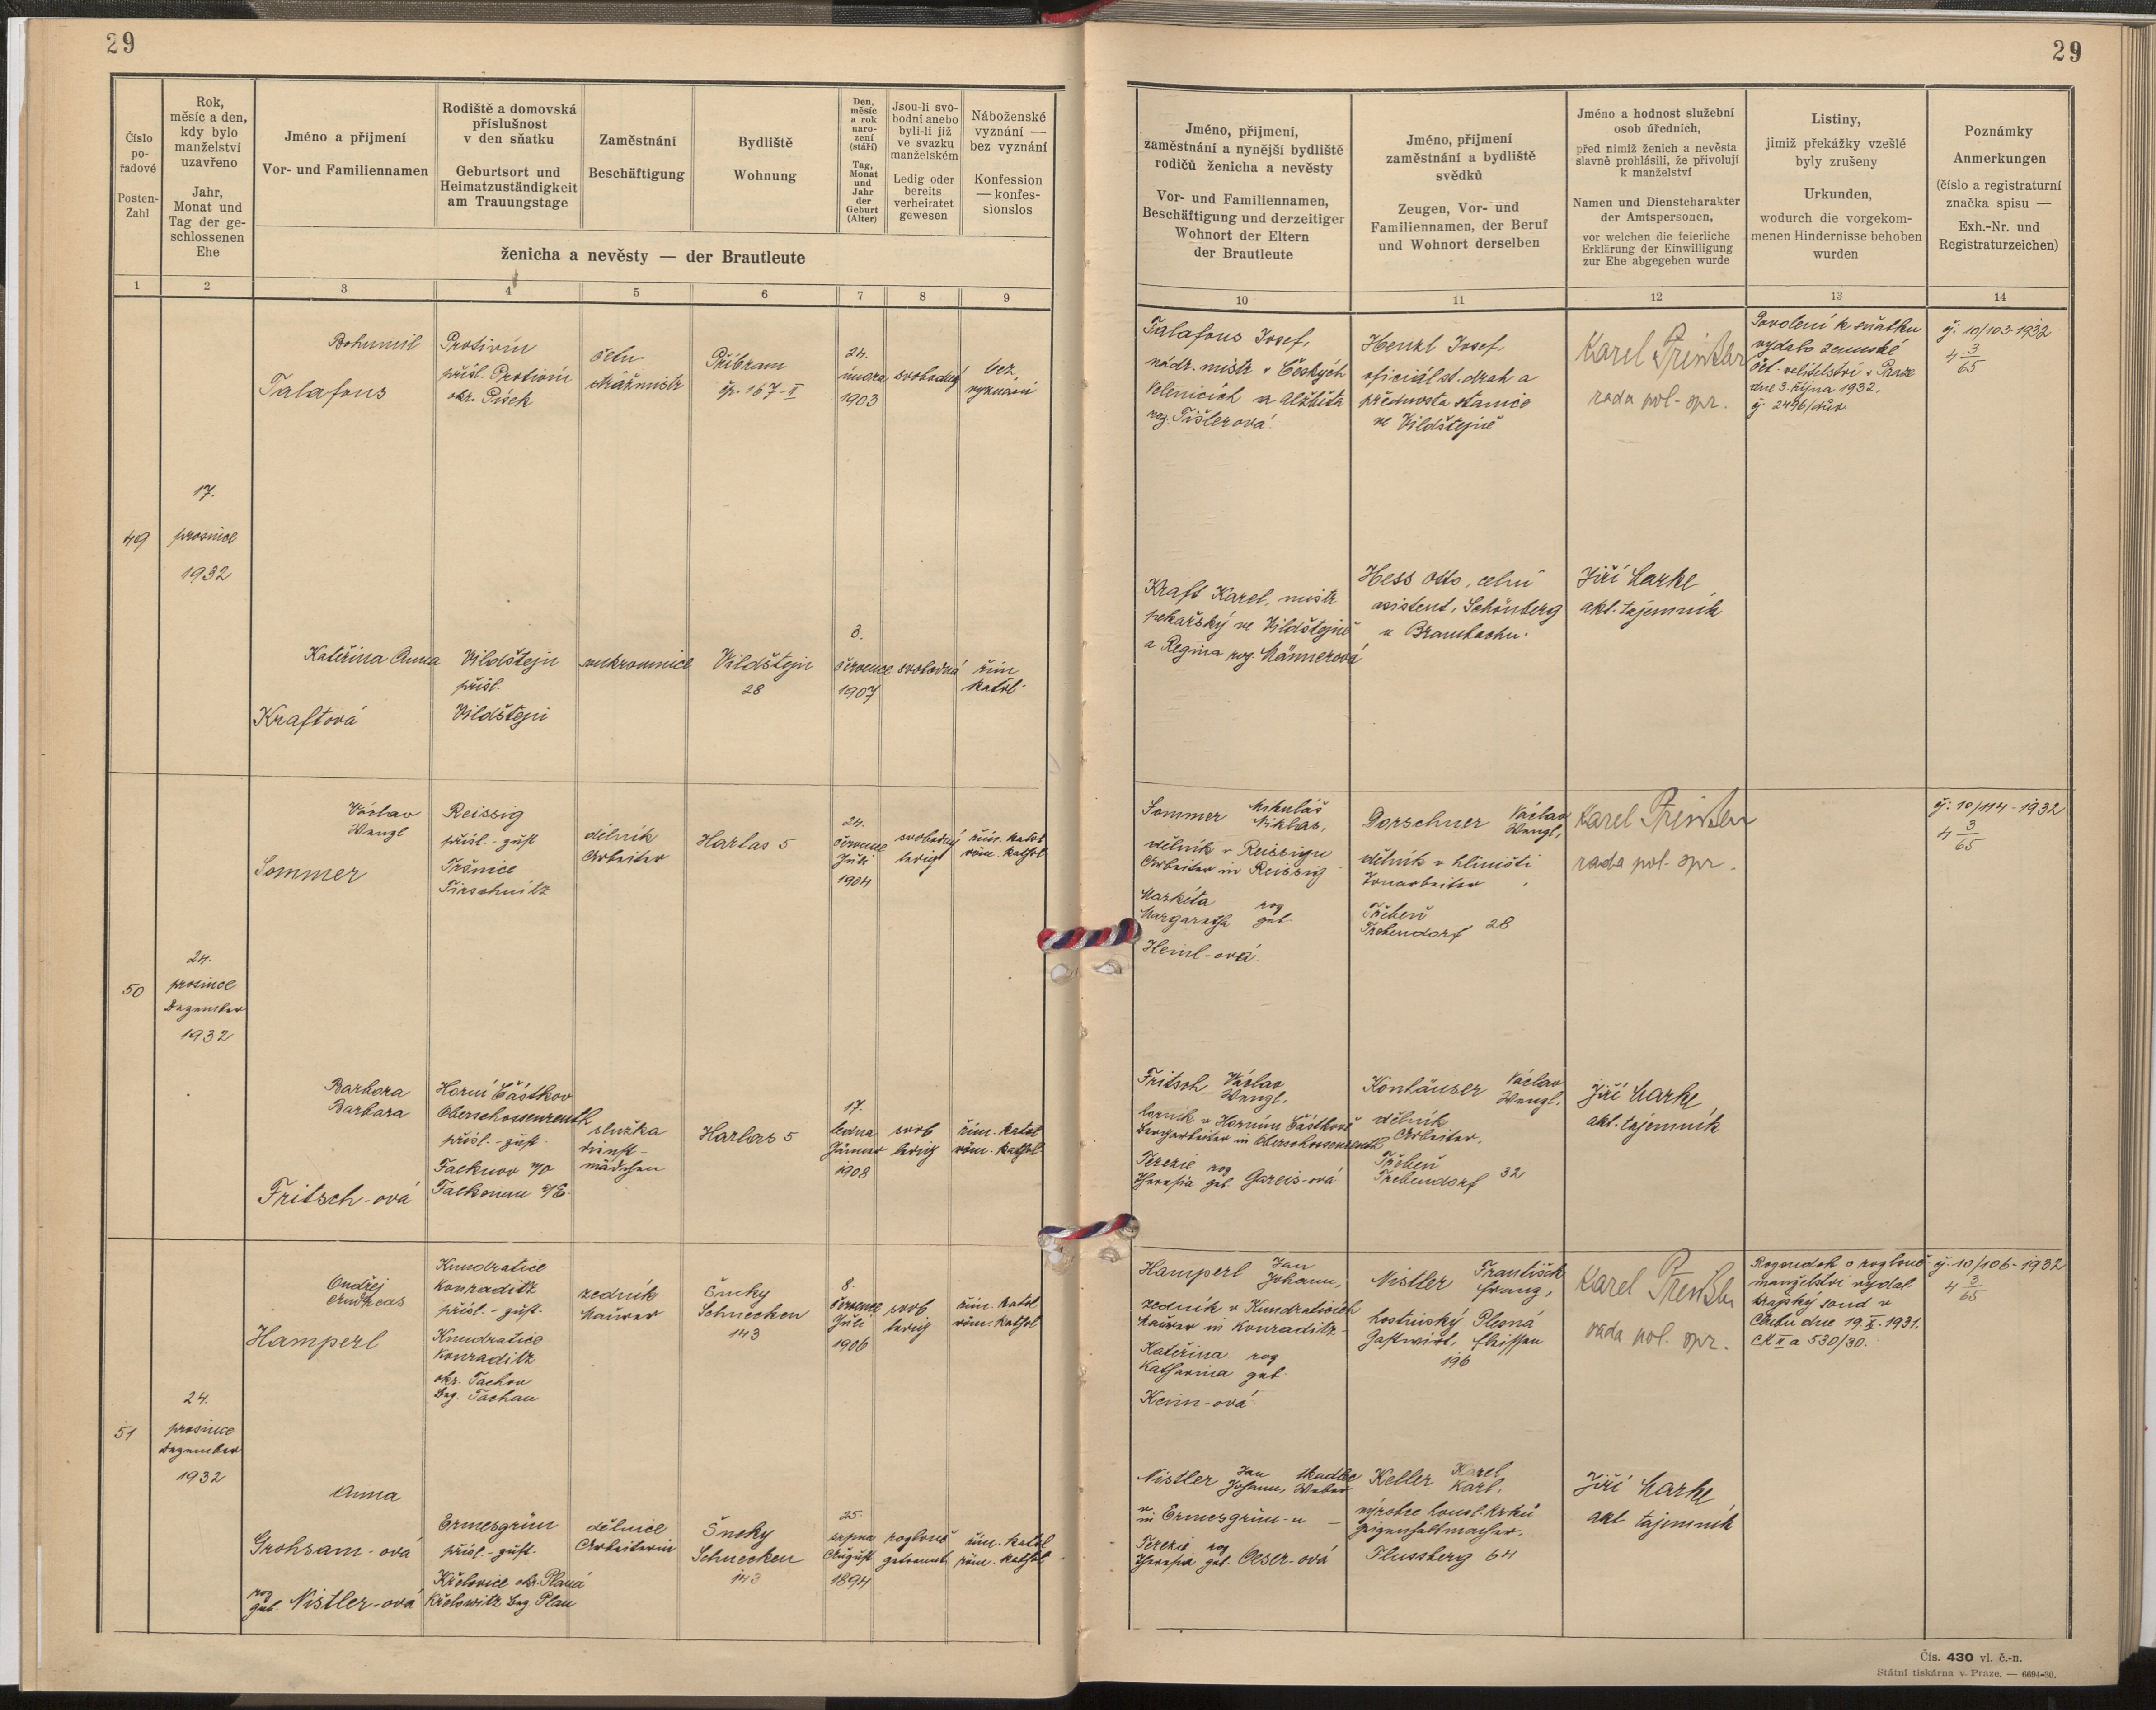 29
29
Číslo
po-
řadové
Posten-
Zahl
Rok,
měsíc a den,
kdy bylo
manželství
uzavřeno
Jahr,
Monat und
Tag der ge-
schlossenen
Ehe
Jméno a příjmení
Vor- und Familiennamen
Rodiště a domovská
příslušnost
v den sňatku
Geburtsort und
Heimatzuständigkeit
am Trauungstage
Zaměstnání
Beschäftigung
Bydliště
Wohnung
Den,
měsíc
a rok
naro-
zení
(stáří)
Tag,
Monat
und
Jahr
der
Geburt
(Alter)
Jsou-li svo-
bodni anebo
byli-li již
ve svazku
manželském
Ledig oder
bereits
verheiratet
gewesen
Náboženské
vyznání —
bez vyznání
Konfession
— konfes-
sionslos
ženicha a nevěsty — der Brautleute
Jméno, příjmení,
zaměstnání a nynější bydliště
rodičů ženicha a nevěsty
Vor- und Familiennamen,
Beschäftigung und derzeitiger
Wohnort der Eltern
der Brautleute
Jméno, příjmení
zaměstnání a bydliště
svědků
Zeugen, Vor- und
Familiennamen, der Beruf
und Wohnort derselben
Jméno a hodnost služební
osob úředních,
před nimiž ženich a nevěsta
slavně prohlásili, že přivolují
k manželství
Namen und Dienstcharakter
der Amtspersonen,
vor welchen die feierliche
Erklärung der Einwilligung
zur Ehe abgegeben wurde
Listiny,
jimiž překážky vzešlé
byly zrušeny
Urkunden,
wodurch die vorgekom-
menen Hindernisse behoben
wurden
Poznámky
Anmerkungen
(číslo a registraturní
značka spisu —
Exh.-Nr. und
Registraturzeichen)
1 2 3 4 5 6 7 8 9 10 11 12 13 14
49
17.
prosince
1932
Bohumil
Talafous
Protivín
přísl. Protivín
okr. Písek
četn
strážmistr
Příbram
čp. 167-II
24.
února
1903
svobodný
bez
vyznání
Talafous Josef,
nádr. mistr v Českých
Velenicích a Alžběta
roz. Tišlerová.
Henzl Josef,
oficiál st. drah a
přednosta stanice
ve Vildštejně
Karel
rada pol. spr.
Povolení k sňatku
vydalo zemské
čet. velitelství v Praze
dne 3. října 1932,
čj. 2496/dův
čj: 10/103-1932
4 3/65
Kateřina Anna
Kraftová
Vildštejn
přísl.
Vildštejn
soukromnice
Vildštejn
28
3.
července
1907
svobodná
řím
katol.
Kraft Karel, mistr
pekařský ve Vildštejně
a Regina roz. Männerová
Hess Otto, celní
asistent, Schönberg
u Brambachu.
Jiří Marke
akt. tajemník
50
24.
prosince
Dezember
1932
Václav
Wenzl
Sommer
Reissig
přísl. - zust
Tršnice
Tirschnitz
dělník
Arbeiter
Harlas 5
24.
července
Juli
1904
svobodný
ledig
řím. katol
röm. kathol
Sommer Mikuláš
Niklas,
dělník v Reissigu
Arbeiter in Reissig
Markéta roz
Margaretha geb.
Heinl-ová.
Dorschner Václav
Wenzl,
dělník v hliništi
Tonarbeiter,
Třebeň
Trebendorf 28
Karel
rada pol. spr.
čj: 10/114-1932
4 3/65
Barbora
Barbara
Fritsch-ová
Horní Částkov
Oberschossenreuth
přísl. - zust.
Falknov n/O
Falkenau a/E.
služka
Dienst-
mädchen
Harlas 5
17.
ledna
Jänner
1908
svob
ledig
řím. katol
röm. kathol
Fritsch Václav
Wenzl.
horník v Horním Částkově
Bergarbeiter in Oberschossenreuth
Terezie roz
Theresia geb. Gareis-ová
Konhäuser Václav
Wenzl.
dělník
Arbeiter.
Třebeň
Trebendorf 32
Jiří Marke
akt. tajemník
51
24.
prosince
Dezember
1932
Ondřej
Andreas
Hamperl
Kundratice
Konraditz
přísl. - zust.
Kundratice
Konraditz
okr. Tachov
Bez. Tachau
zedník
Maurer
Šneky
Schnecken
143
8.
července
Juli
1906
svob
ledig
řím. katol
röm. kathol
Hamperl Jan
Johann,
zedník v Kundraticích
Maurer in Konraditz.
Kateřina roz
Katharina geb.
Keim-ová.
Nistler František
Franz,
hostinský Plesná
Gastwirt, Fleissen
196
Karel
rada pol. spr.
Rozsudek o rozlouč
manželství vydal
krajský soud v
Chebu dne 19.X.1931.
Ck II a 530/30.
čj. 10/106-1932
4 3/65
Anna
Grohsam-ová
roz
geb. Nistler-ová
Ermesgrün
přísl. - zust.
Křelovice okr. Planá
Křelowitz Bez Plan
dělnice
Arbeiterin
Šneky
Schnecken
143
25.
srpna
August
1894
rozlouč
getrennt
řím. katol
röm. kathol
Nistler Jan tkadlec
Johann, Weber
v
in Ermesgrün-u
Terezie roz
Theresia geb. Oeser-ová
Keller Karel
Karl,
výrobce housl. krků
Geigenhalsmacher,
Flussberg 64
Jiří Marke
akt tajemník
Čís. 430 vl. č.-n.
Státní tiskárna v Praze. — 6694-30.